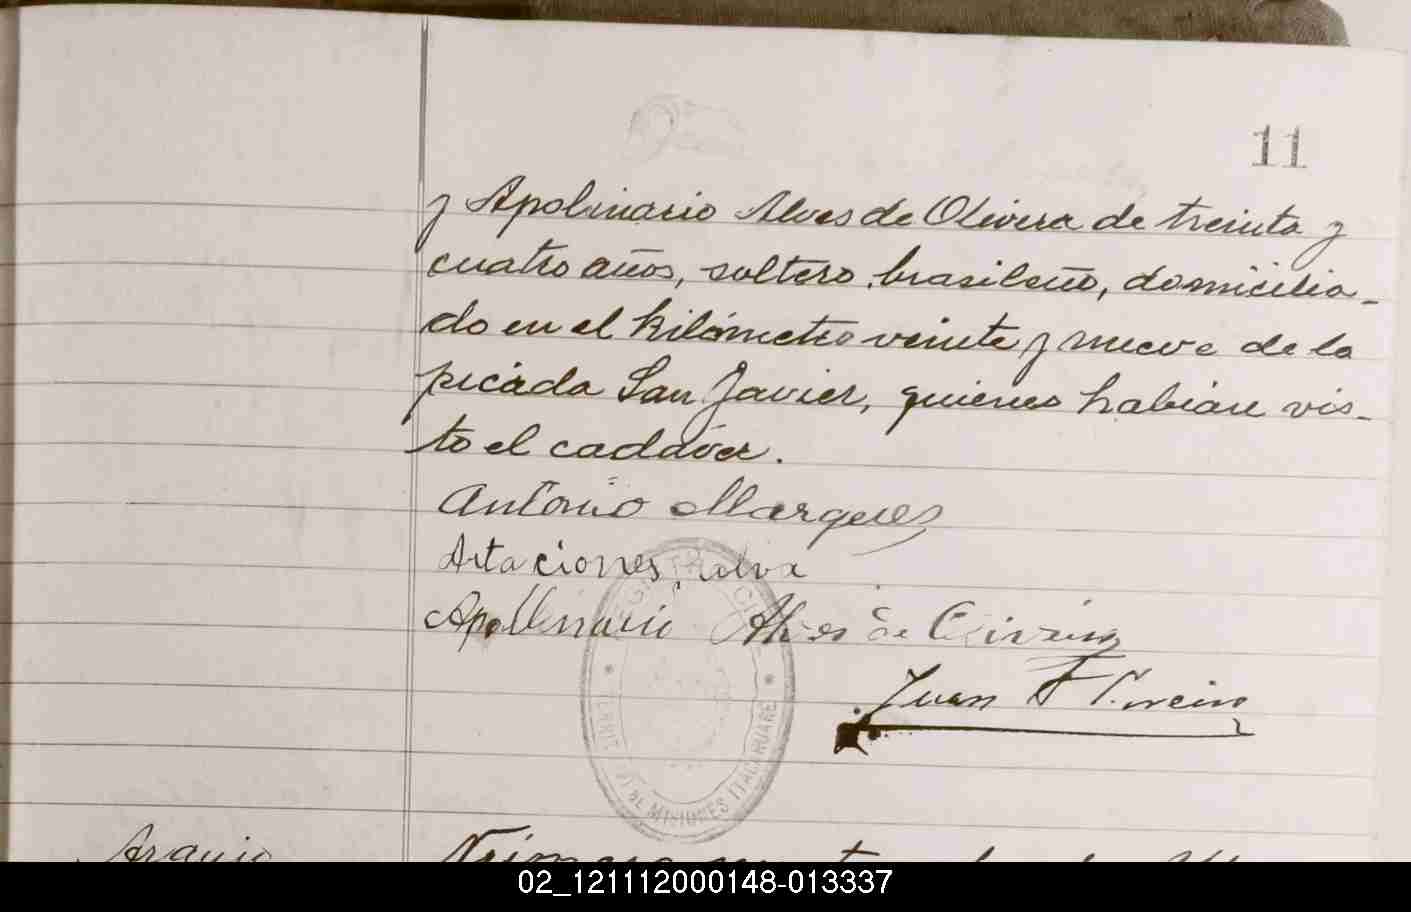 11
y Apolinario Alves de Olivera de treinta y
cuatro años, soltero, brasileño, domicilia-
do en el kilómetro veinte y nueve de la
picada San Javier, quienes habian vis-
to el cadáver.
Antonio Marques
Silva
Apollinario Alves de Oliveira
Juan F
REGISTRO CIVIL
DE MISIONES ITACARUARE
Araujo
Número
02_121112000148-013337